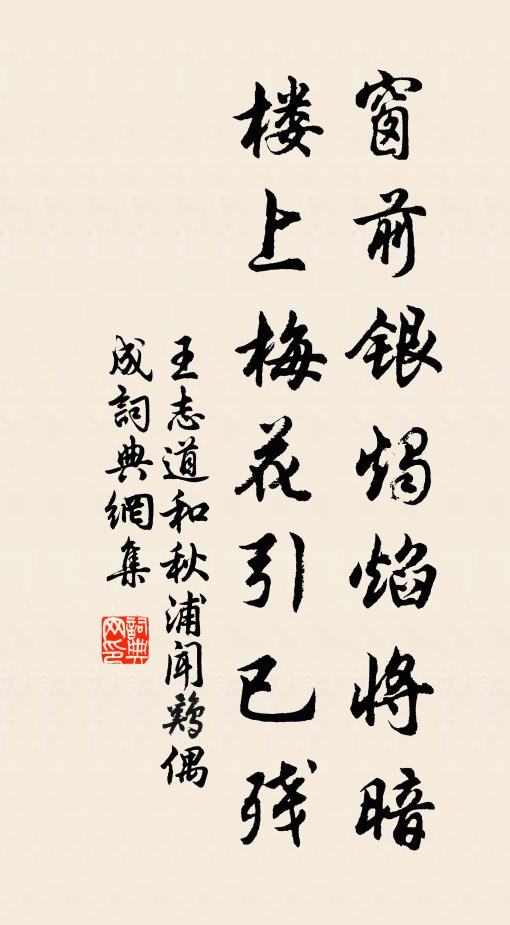 窗前銀燭焰将暗
楼上梅花引已残
王志道和秋浦闻鷄偶
成詞典網集
詞典网印